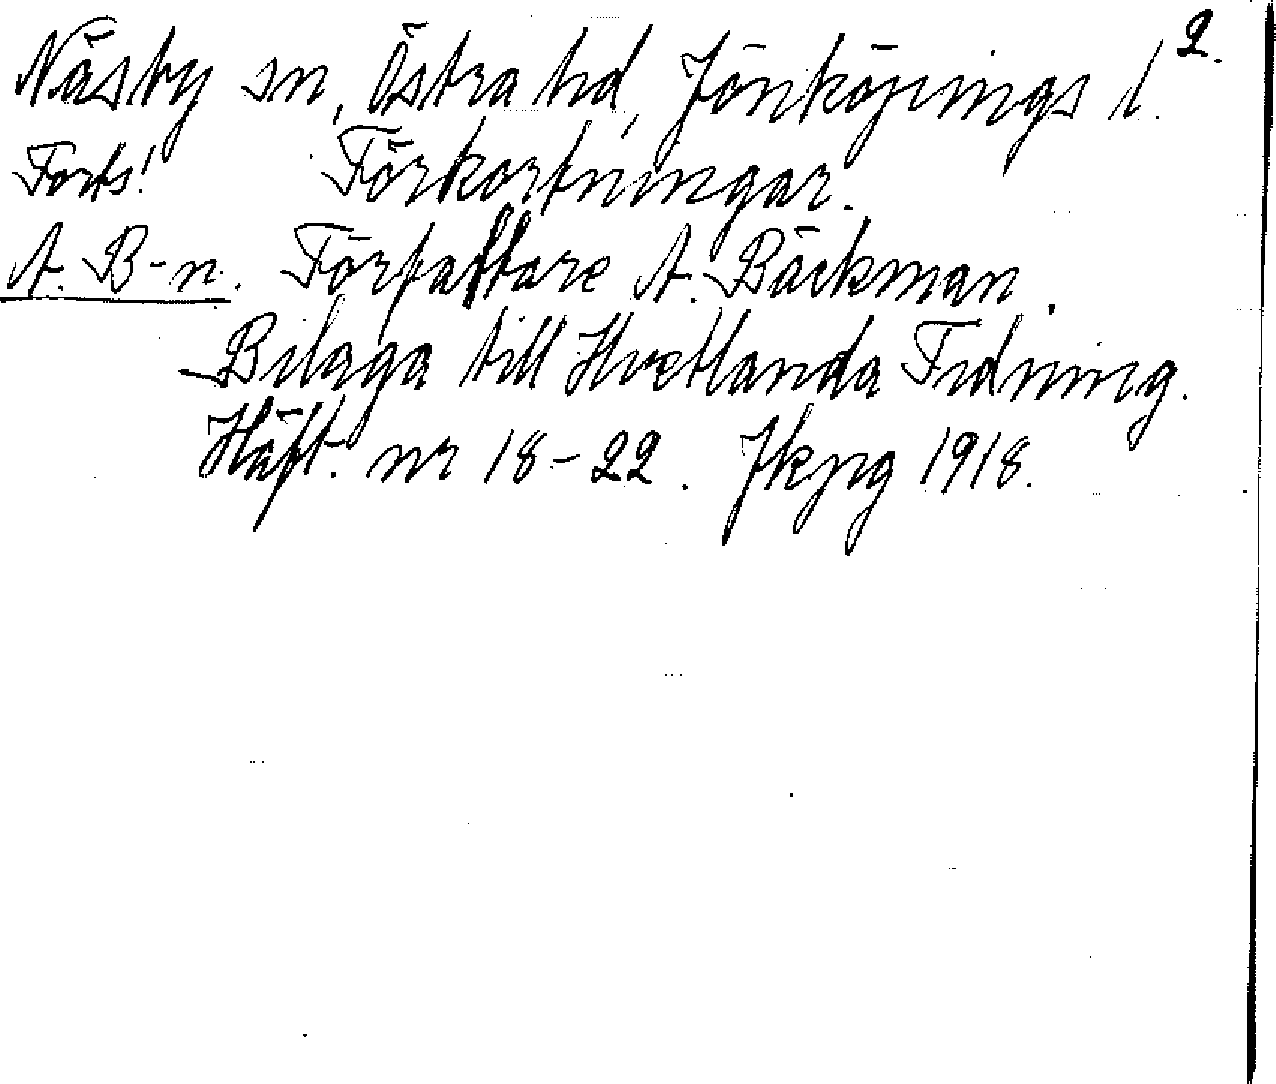 2.
Näsby sn, Östra hd, Jönköpings l.
Forts! Förkortningar.
A. B-n. Författare A. Bäckman.
Bilaga till Hvetlanda Tidning.
Häft. nr 18-22. Jkpg 1918.